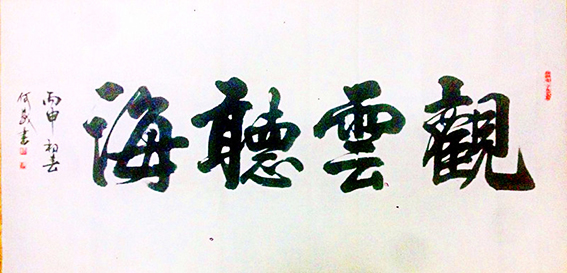 觀雲聽海
丙申初春